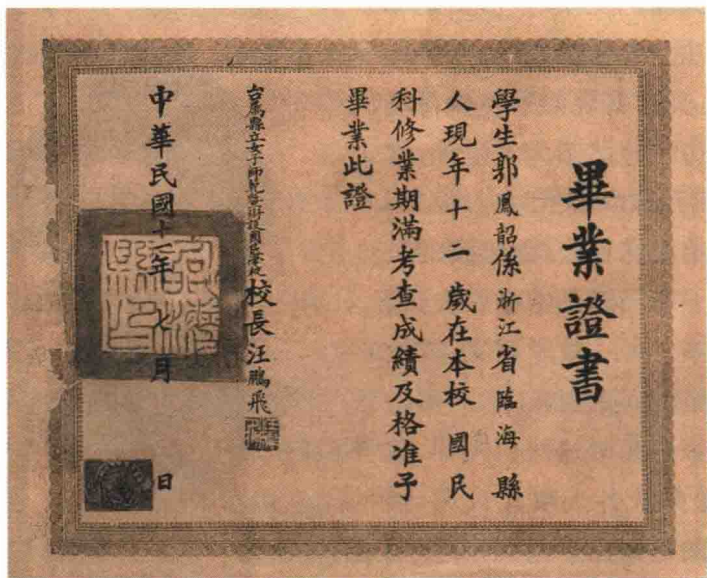 畢業證書
學生郭鳳韶係浙江省臨海縣
人現年十二歲在本校國民
科修業期滿考查成績及格准予
畢業此證
校長汪鵬飛
中華民國十一年七月 日